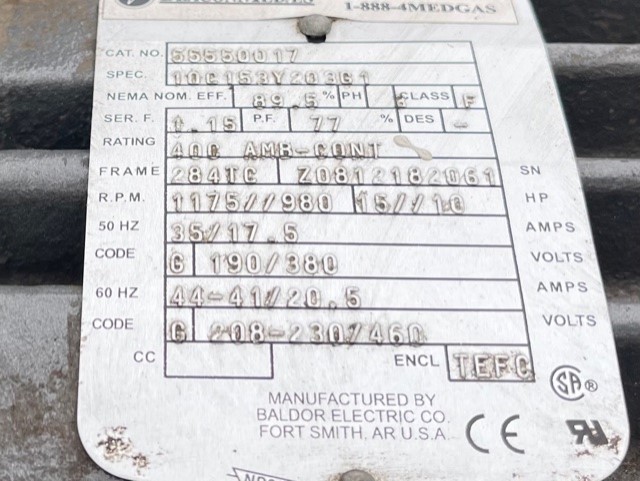 1-888-4MEDGAS
CAT. NO. 55550017
SPEC. 10C153Y203G1
NEMA NOM. EFF. 89.5 % PH CLASS F
SER. F. 1.15 P.F. 77 % DES -
RATING 40C AMB-CONT
FRAME 284TC Z0812182061 SN
R.P.M. 1175//980 15//10 HP
50 HZ 35/17.5 AMPS
CODE G 190/380 VOLTS
60 HZ 44-41/20.5 AMPS
CODE G 208-230/460 VOLTS
CC ENCL TEFC
MANUFACTURED BY
BALDOR ELECTRIC CO.
FORT SMITH, AR U.S.A.
SA ®
CE